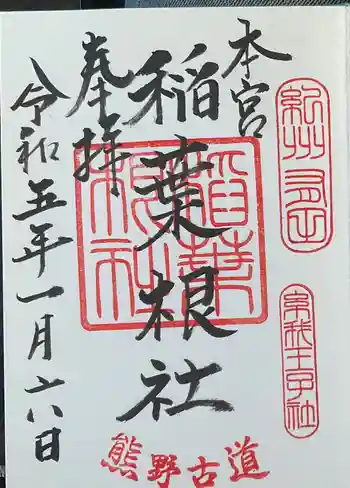 本宮
稲葉根社
奉拝
令和五年一月六日
熊野古道
稲葉
根社
糸我王子社